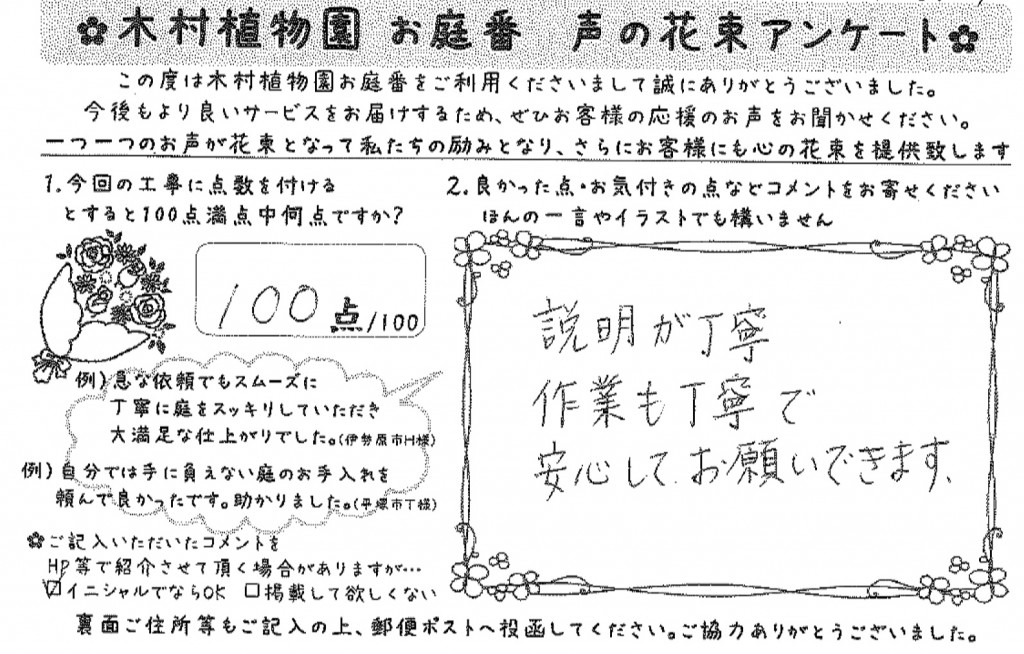 ✿木村植物園 お庭番 声の花束アンケート✿
この度は木村植物園お庭番をご利用くださいまして誠にありがとうございました。
今後もより良いサービスをお届けするため、ぜひお客様の応援のお声をお聞かせください。
一つ一つのお声が花束となって私たちの励みとなり、さらにお客様にも心の花束を提供致します
1.今回の工事に点数を付ける
とすると100点満点中何点ですか?
100点/100
例)急な依頼でもスムーズに
丁寧に庭をスッキリしていただき
大満足な仕上がりでした。(伊勢原市H様)
例)自分では手に負えない庭のお手入れを
頼んで良かったです。助かりました。(平塚市T様)
✿ご記入いただいたコメントを
HP等で紹介させて頂く場合がありますが…
☑イニシャルでならOK ☐掲載して欲しくない
2.良かった点・お気付きの点などコメントをお寄せください
ほんの一言やイラストでも構いません
説明が丁寧
作業も丁寧で
安心してお願いできます、
裏面ご住所等もご記入の上、郵便ポストへ投函してください。ご協力ありがとうございました。